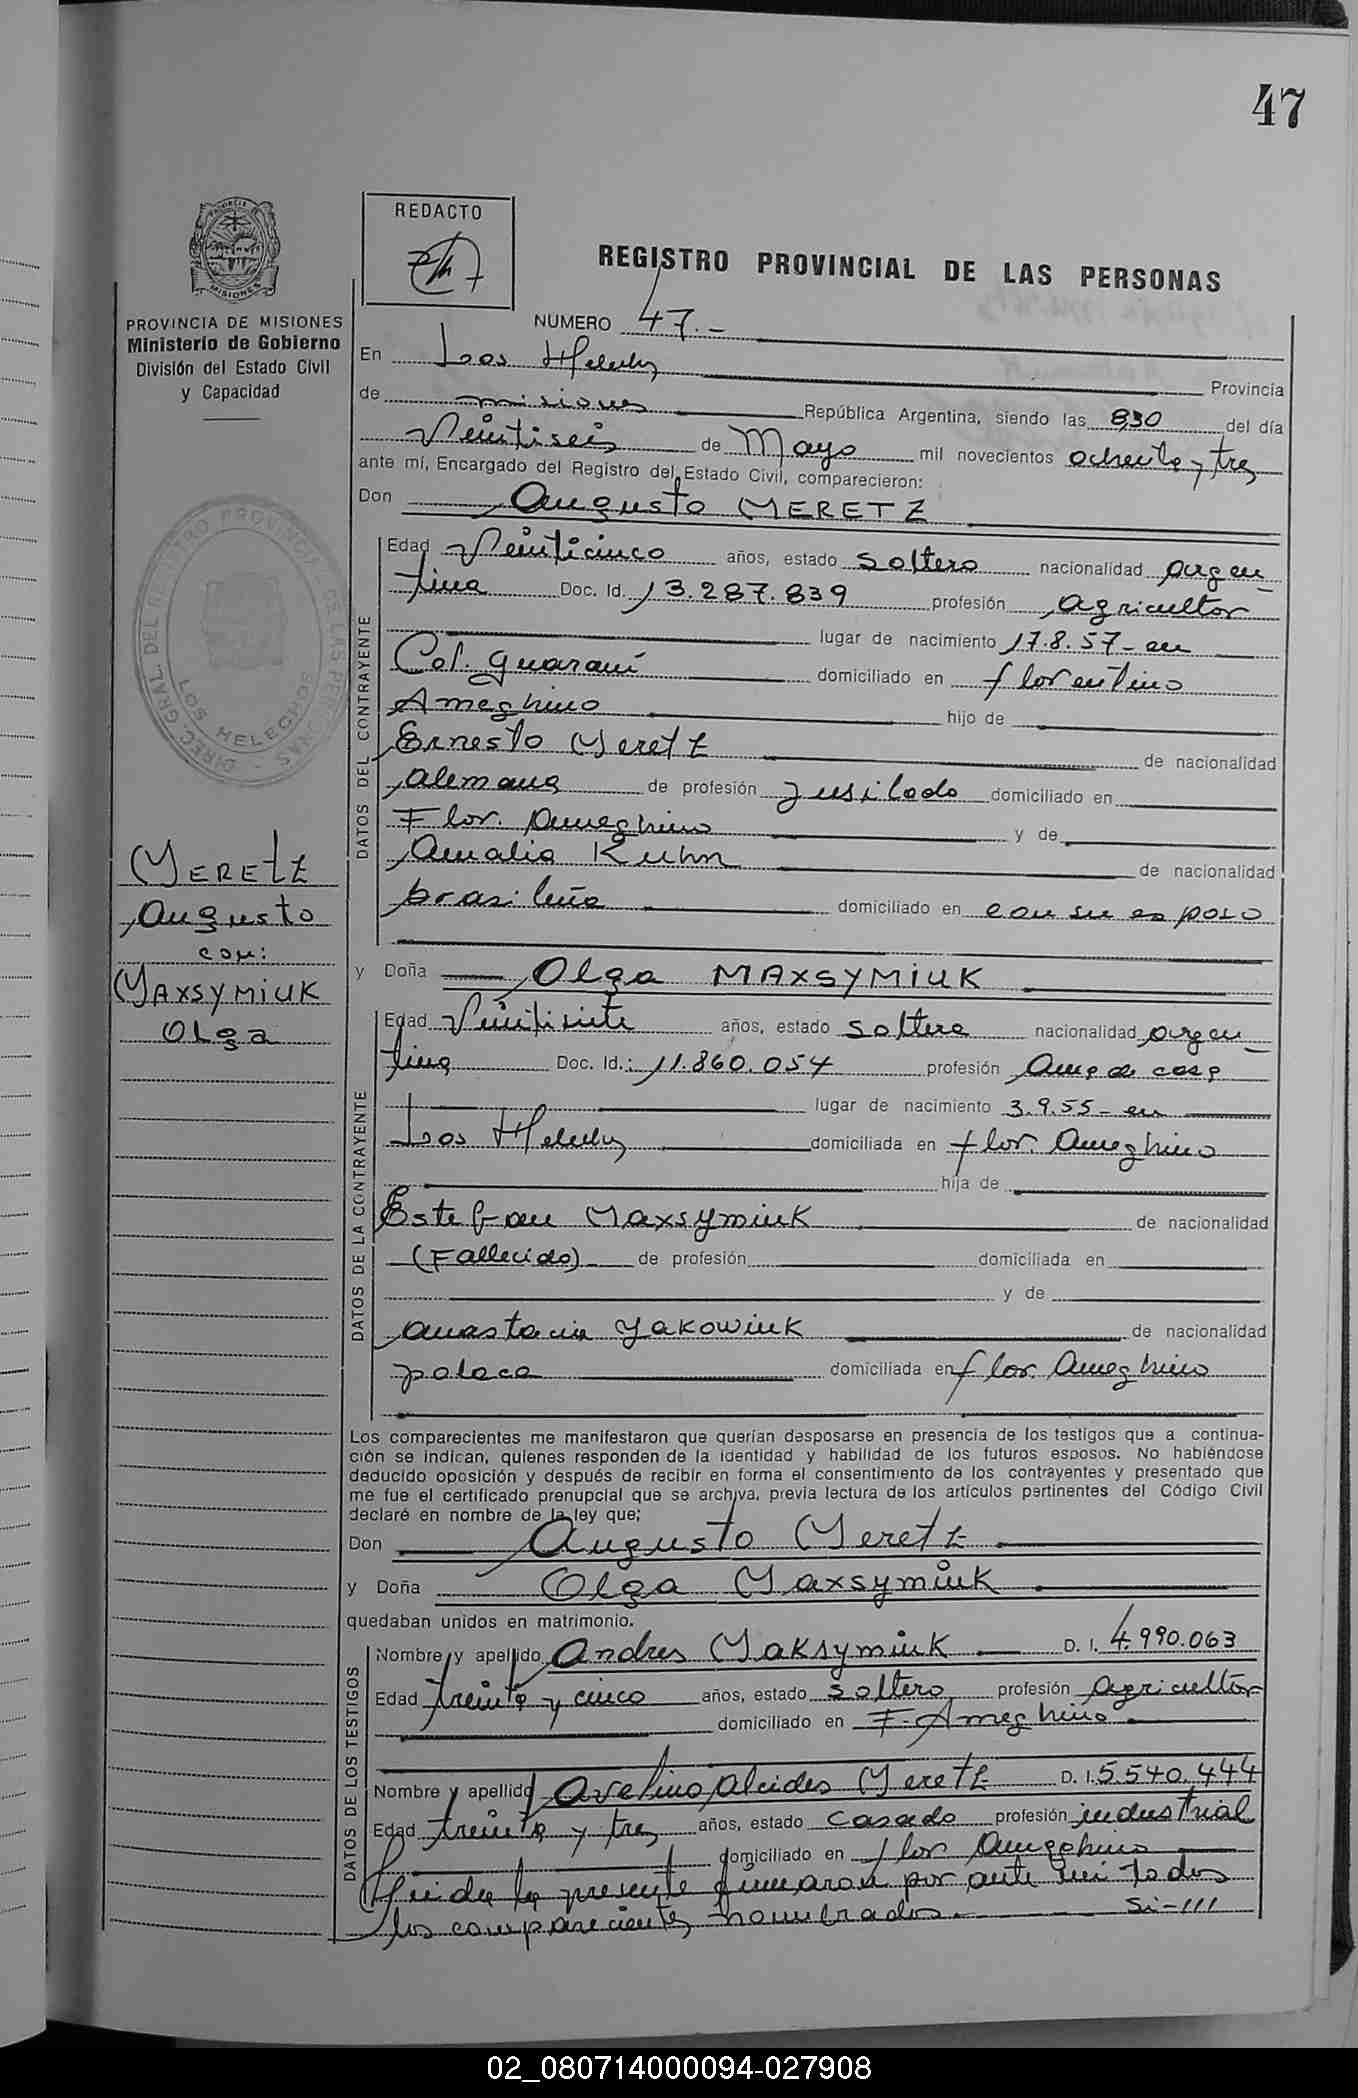 47
REDACTO
REGISTRO PROVINCIAL DE LAS PERSONAS
PROVINCIA DE MISIONES
Ministerio de Gobierno
División del Estado Civil
y Capacidad
NUMERO 47.-
En Los Helechos Provincia
de misiones República Argentina, siendo las 8,30 del día
Veintiseis de Mayo mil novecientos ochenta y tres
ante mí, Encargado del Registro del Estado Civil, comparecieron:
Don Augusto MERETZ
DIREC. GRAL. DEL REGISTRO PROVINCIAL DE LAS PERSONAS
LOS HELECHOS
MERETZ
Augusto
con:
MAXSYMIUK
Olga
DATOS DEL CONTRAYENTE
Edad Veinticinco años, estado soltero nacionalidad argen-
tina Doc. Id. 13.287.839 profesión agricultor
lugar de nacimiento 17.8.57- en
Col. Guaraní domiciliado en florentino
Ameghino hijo de
Ernesto Meretz de nacionalidad
alemana de profesión Jusilado domiciliado en
Flor. Ameghino y de
Amalia Kuhn de nacionalidad
brasileña domiciliado en con su esposo
y Doña Olga MAXSYMIUK
DATOS DE LA CONTRAYENTE
Edad Veintisiete años, estado soltera nacionalidad argen-
tina Doc. Id.: 11.860.054 profesión Ama de casa
lugar de nacimiento 3.9.55- en
Los Helechos domiciliada en flor. Ameghino
hija de
Estefan Maxsymiuk de nacionalidad
(Fallecido) de profesión domiciliada en
y de
Anastacia Yakowiuk de nacionalidad
polaca domiciliada en flor. Ameghino
Los comparecientes me manifestaron que querían desposarse en presencia de los testigos que a continua-
ción se indican, quienes responden de la identidad y habilidad de los futuros esposos. No habiéndose
deducido oposición y después de recibir en forma el consentimiento de los contrayentes y presentado que
me fue el certificado prenupcial que se archiva, previa lectura de los artículos pertinentes del Código Civil
declaré en nombre de la ley que;
Don Augusto Meretz
y Doña Olga Maxsymiuk
quedaban unidos en matrimonio.
DATOS DE LOS TESTIGOS
Nombre y apellido Andres Maksymiuk D. I. 4.990.063
Edad treinta y cinco años, estado soltero profesión agricultor
domiciliado en F. Ameghino
Nombre y apellido Avelino Alcides Meretz D. I. 5.540.444
Edad treinta y tres años, estado casado profesión industrial
domiciliado en flor Ameghino
Leída la presente firmaron por ante mi todos
los comparecientes nombrados. Si-///
02_080714000094-027908